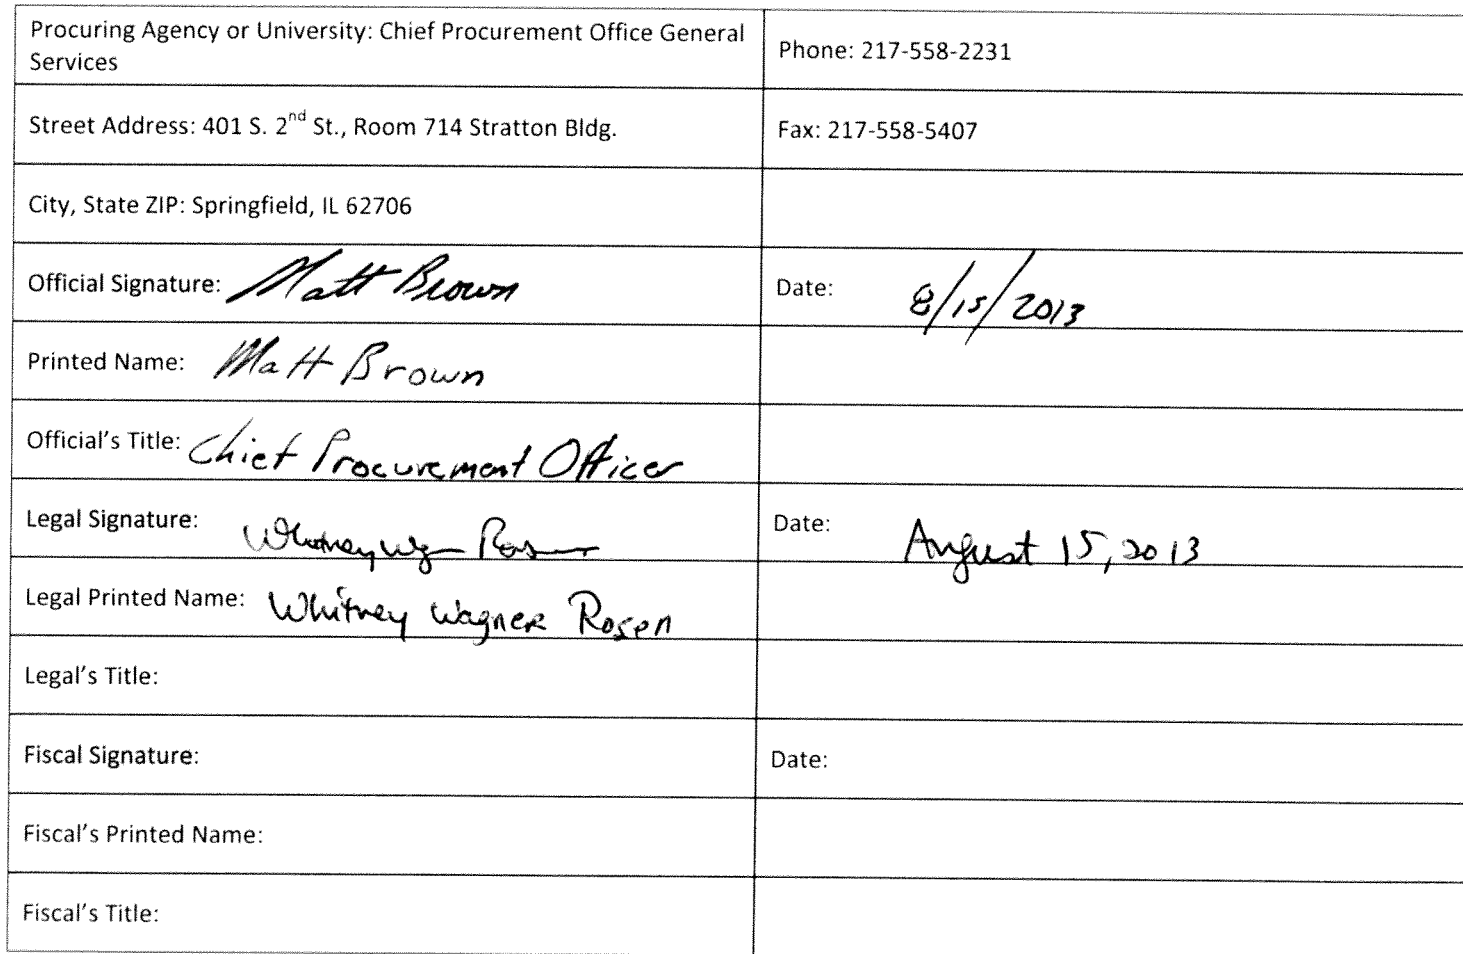 Procuring Agency or University: Chief Procurement Office General
Services
Phone: 217-558-2231
Street Address: 401 S. 2nd St., Room 714 Stratton Bldg.
Fax: 217-558-5407
City, State ZIP: Springfield, IL 62706
Official Signature: Matt Brown
Date: 8/15/2013
Printed Name: Matt Brown
Official's Title: Chief Procurement Officer
Legal Signature: Whitney Wagner Rosen
Date: August 15, 2013
Legal Printed Name: Whitney Wagner Rosen
Legal's Title:
Fiscal Signature:
Date:
Fiscal's Printed Name:
Fiscal's Title: